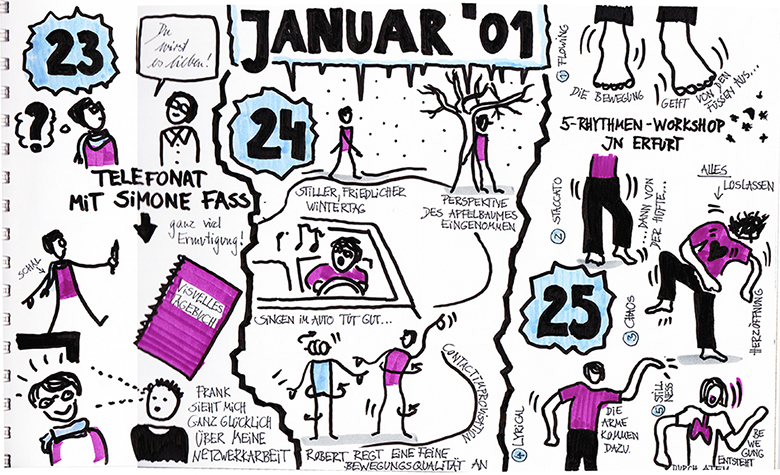 JANUAR '01
23
?
Du
wirst
es lieben!
TELEFONAT
MIT SIMONE FASS
ganz viel
Ermutigung!
SCHAL
VISUELLES
TAGEBUCH
FRANK
SIEHT MICH
GANZ GLÜCKLICH
ÜBER MEINE
NETZWERKARBEIT
24
STILLER, FRIEDLICHER
WINTERTAG
PERSPEKTIVE
DES APFELBAUMES
EINGENOMMEN
SINGEN IM AUTO TUT GUT...
CONTACTIMPROVISATION
ROBERT REGT EINE FEINE
BEWEGUNGSQUALITÄT AN
25
① FLOWING
DIE BEWEGUNG
GEHT VON DEN
FÜSSEN AUS...
5-RHYTHMEN-WORKSHOP
IN ERFURT
② STACCATO
...DANN VON
DER HÜFTE...
ALLES
LOSLASSEN
③ CHAOS
HERZÖFFNUNG
④ LYRICAL
DIE
ARME
KOMMEN
DAZU.
⑤ STILL
NESS
BE
WE
GUNG
ENTSTEHT